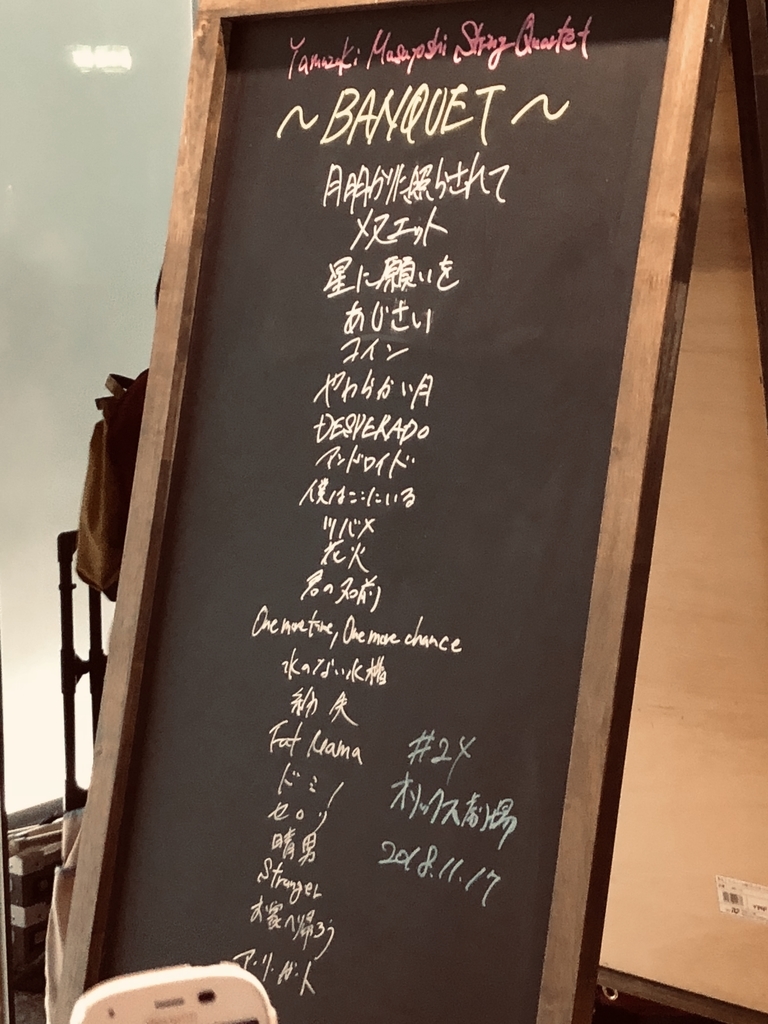 Yamazaki Masayoshi String Quartet
～BANQUET～
月明かりに照らされて
メヌエット
星に願いを
あじさい
コイン
やわらかい月
DESPERADO
アンドロイド
僕はここにいる
ツバメ
花火
君の名前
One more time, One more chance
水のない水槽
紛失
Fat Mama
ドミノ
セロリ
晴男
Stranger
お家へ帰ろう
ア・リ・ガ・ト
#24
オリックス劇場
2018.11.17